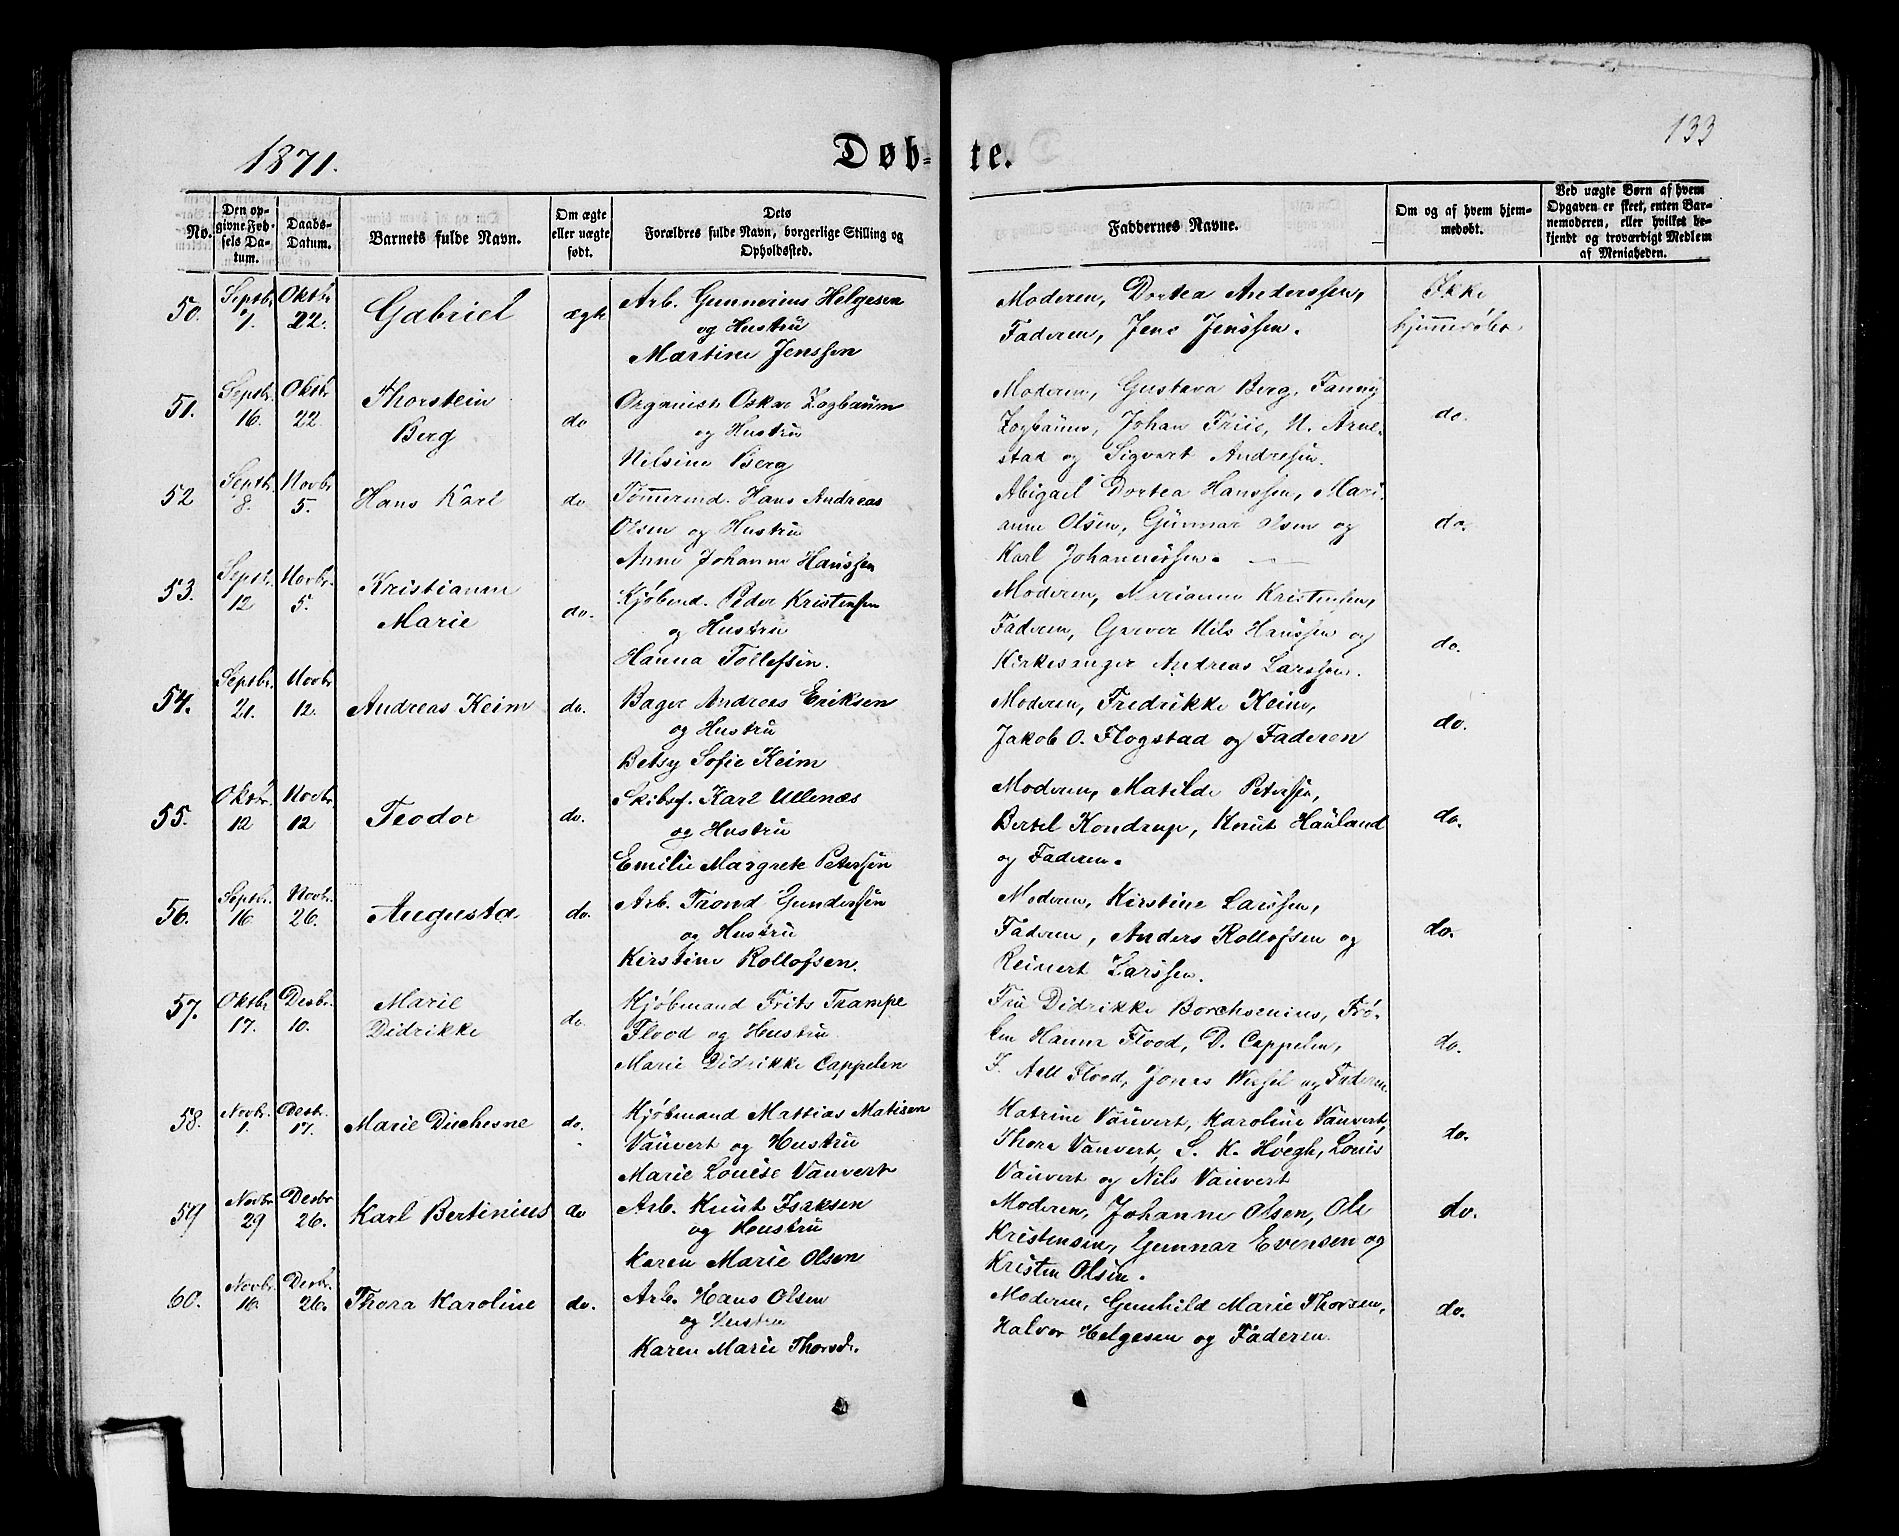 133
1871.
Døb-
te.
No.
Den op-
givne Fød-
sels Da-
tum.
Daabs-
Datum.
Barnets fulde Navn.
Om ægte
eller uægte
født.
Dets
Forældres fulde Navn, borgerlige Stilling og
Opholdssted.
Faddernes Navne.
Om og af hvem hjem-
medøbt.
Ved uægte Børn af hvem
Opgaven er skeet, enten Bar-
nemoderen, eller hvilket be-
kjendt og troværdigt Medlem
af Menigheden.
50.
Septbr.
7.
Oktbr
22.
Gabriel
ægte
Arb. Gunnerius Helgesen
og Hustru
Martine Jenssen
Moderen, Dortea Anderssen,
Faderen, Jens Jenssen.
Ikke
hjemmedøbt
51.
Septbr.
16.
Oktbr
22.
Thorstein
Berg
do
Organist Oskar Zogbaum
og Hustru
Nilsine Berg
Moderen, Gustava Berg, Fanny
Zogbaum, Johan Friie, N. Arne-
stad og Sigvart Andresen.
do.
52
Septbr.
8.
Novbr
5.
Hans Karl
do
Tømmermd. Hans Andreas
Olsen og Hustru
Anne Johanne Hanssen
Abigael Dortea Hanssen, Mari-
anne Olsen, Gunnar Olsen og
Karl Johannessen.
do.
53.
Septbr.
12
Novbr.
5.
Kristianne
Marie
do.
Kjøbmd. Peder Kristensen
og Hustru
Hanna Tollefsen.
Moderen, Marianne Kristensen,
Faderen, Garver Nils Hanssen og
Kirkesanger Andreas Larssen.
do.
54.
Septbr.
21.
Novbr
12.
Andreas Keim
do.
Bager Andreas Eriksen
og Hustru
Betsy Sofie Keim
Moderen, Fredrikke Keim,
Jakob O. Flogstad og Faderen
do.
55.
Oktbr.
12
Novbr.
12
Teodor
do.
Skibsf. Karl Ullenæs
og Hustru
Emilie Margrete Petersen
Moderen, Matilde Petersen,
Bertel Kondrup, Knut Hauland
og Faderen.
do.
56.
Septbr.
16
Novbr.
26.
Augusta
do.
Arb. Trond Gundersen
og Hustru
Kirstine Rollofsen.
Moderen, Kirstine Larssen,
Faderen, Anders Rollofsen og
Reinert Larssen.
do.
57.
Oktbr
17.
Desbr.
10.
Marie
Didrikke
do.
Kjøbmand Frits Trampe
Flood og Hustru
Marie Didrikke Cappelen
Fru Didrikke Borchsenius, Frø-
ken Hanna Flood, D. Cappelen,
J. Aall Flood, Jonas Wessel og Faderen
do.
58.
Novbr.
1.
Desbr.
17.
Marie Duchesne
do.
Kjøbmand Mattias Matisen
Vauvert og Hustru
Marie Louise Vauvert
Katrine Vauvert, Karoline Vauvert,
Thora Vauvert, S. K. Høegh, Louis
Vauvert og Nils Vauvert
do.
59
Novbr
29
Desbr
26.
Karl Bertinius
do
Arb. Knut Isaksen
og Hustru
Karen Marie Olsen
Moderen, Johanne Olsen, Ole
Kristensen, Gunnar Evensen og
Kristen Olsen.
do.
60.
Novbr.
16.
Desbr.
26.
Thora Karoline
do.
Arb. Hans Olsen
og Hustru
Karen Marie Thorsdr.
Moderen, Gunhild Marie Thorsen,
Halvor Helgesen og Faderen.
do.